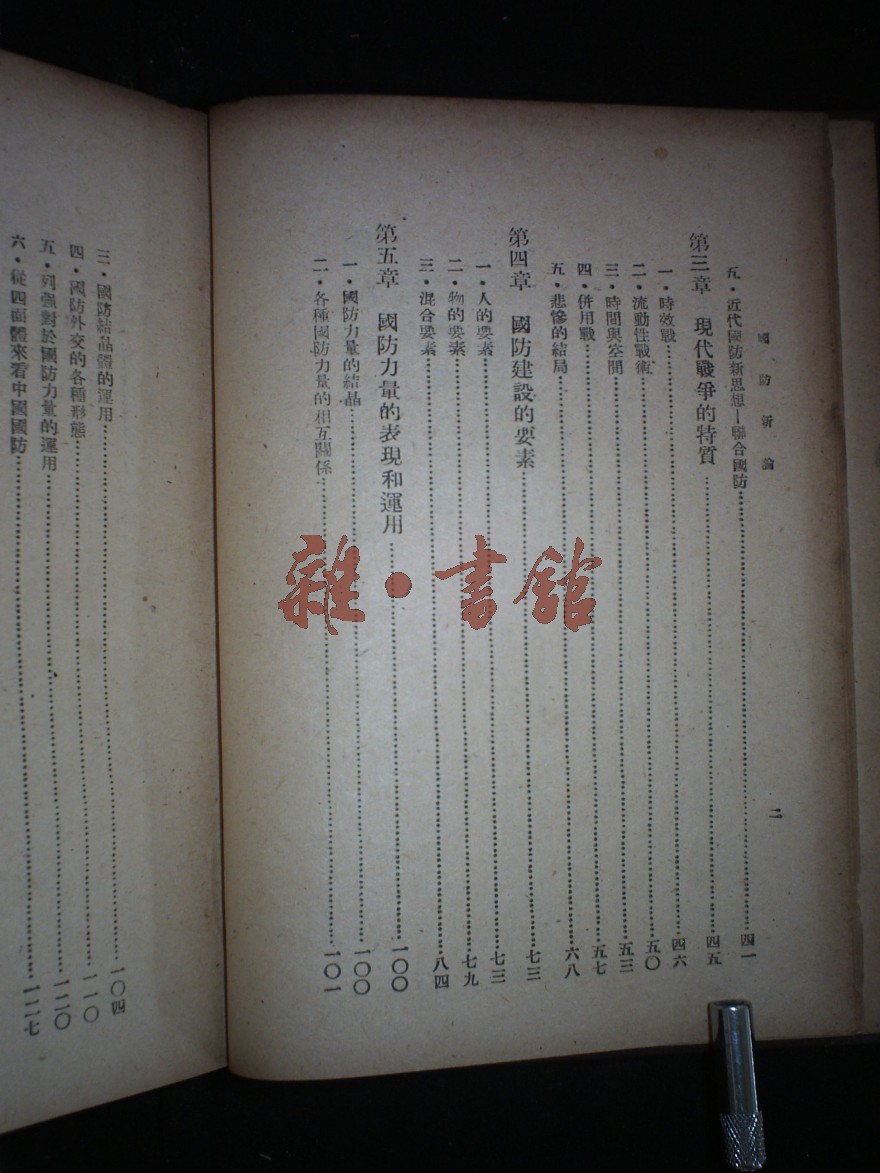 國防新論
二
五·近代國防新思想—聯合國防……四一
第三章 現代戰爭的特質……四五
一·時效戰……四六
二·流動性戰術……五〇
三·時間與空間……五三
四·併用戰……五七
五·悲慘的結局……六八
第四章 國防建設的要素……七三
一·人的要素……七三
二·物的要素……七九
三·混合要素……八四
第五章 國防力量的表現和運用……一〇〇
一·國防力量的結晶……一〇〇
二·各種國防力量的相互關係……一〇一
三·國防結晶體的運用……一〇四
四·國防外交的各種形態……一一〇
五·列强對於國防力量的運用……一二〇
六·從四面體來看中國國防……一二七
雜·書館